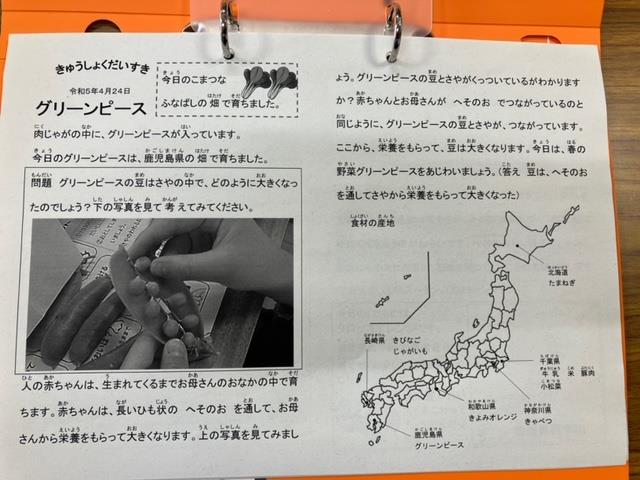 きゅうしょくだいすき
令和5年4月24日
グリーンピース
今日のこまつな
ふなばしの 畑で育ちました。
肉じゃがの中に、グリーンピースが入っています。
今日のグリーンピースは、鹿児島県の 畑で育ちました。
問題 グリーンピースの豆はさやの中で、どのように大きくなっ
たのでしょう?下の写真を見て 考えてみてください。
人の赤ちゃんは、生まれてくるまでお母さんのおなかの中で育
ちます。赤ちゃんは、長いひも状の へそのお を通して、お母
さんから栄養をもらって大きくなります。上の写真を見てみまし
ょう。グリーンピースの豆とさやがくっついているがわかります
か?赤ちゃんとお母さんが へそのお でつながっているのと
同じように、グリーンピースの豆とさやが、つながっています。
ここから、栄養をもらって、豆は大きくなります。今日は、春の
野菜グリーンピースをあじわいましょう。(答え 豆は、へそのお
を通してさやから栄養をもらって大きくなった)
食材の産地
北海道
たまねぎ
長崎県 きびなご
じゃがいも
千葉県
牛乳 米 豚肉
小松菜
神奈川県
きゃべつ
和歌山県
きよみオレンジ
鹿児島県
グリーンピース